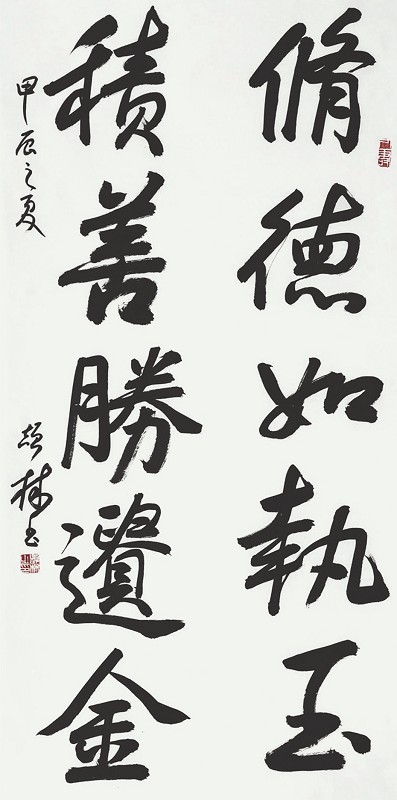 脩德如執玉
積善勝遺金
甲辰之夏
林書